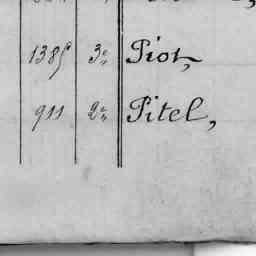 1385 3e Piot,
911 2e Pitel,